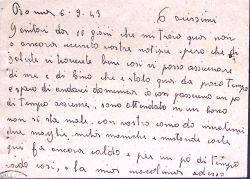 Roma 6-9-43 Carissimi
Genitori dai 10 giorni che mi trovo qua non
o ancora ricevuto vostre notizie, pero che di
salute vi trovate bene così vi posso assicurare
di me e di Gino che e stato qua da poco tempo
e spero di andarci domenica io con permesso un po di
tempo assieme, sono attendato in un bosco
non si sta male. con vostro comodo mandatemi
due maglie, mutande corte
qui fa ancora caldo e per un pò di tempo
cosi, la mia